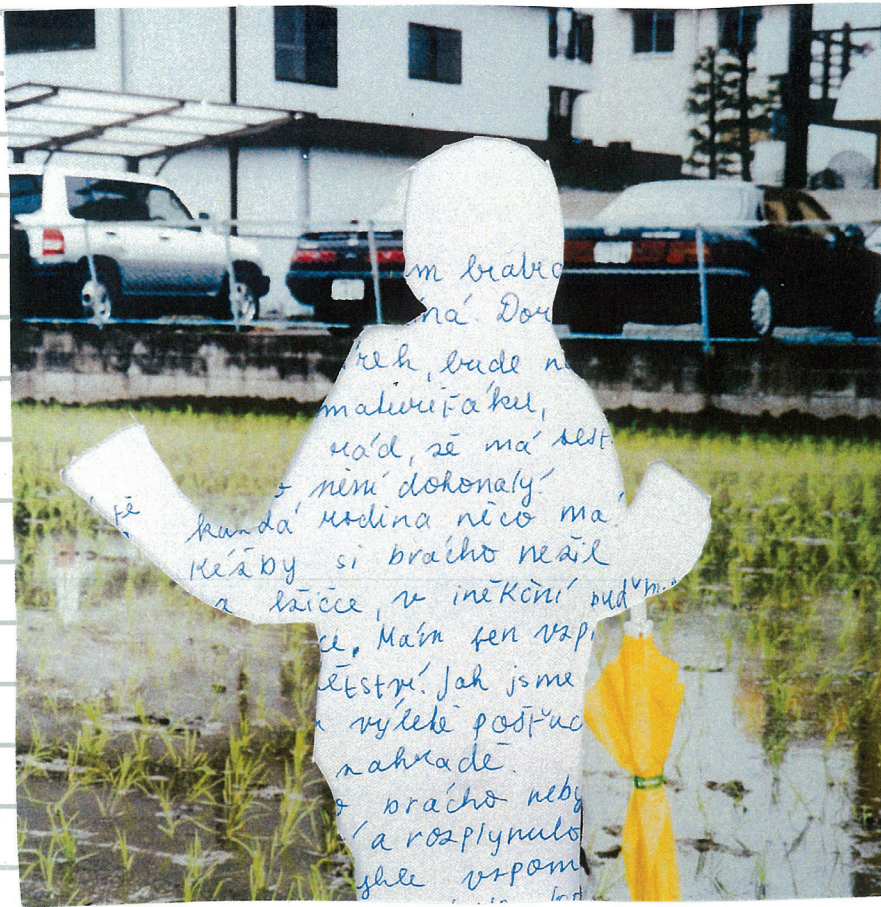 m brabro
ná. Dor
řeh, bude n
maturiťáku,
rád, že má sest
není dokonalý!
každá rodina něco má!
Kéžby si brácho nežil
lžičce, v iněkční
ce. Mám jen vzp
ětství. Jak jsme
výletě pošťuc
zahradě.
brácho neby
a rozplynulo
vzpom